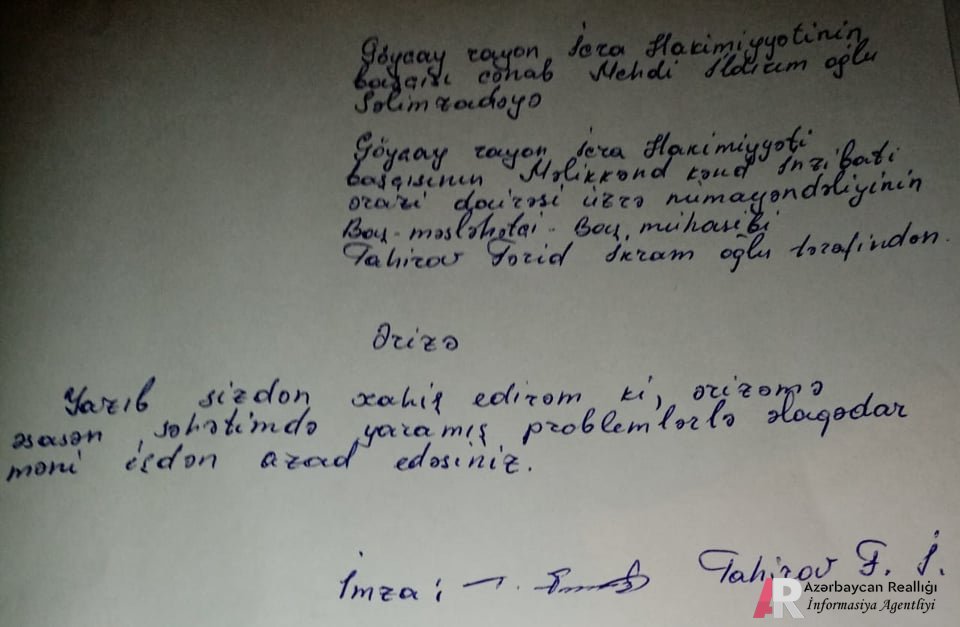 Göyçay rayon İcra Hakimiyyətinin
başçısı cənab Mehdi İldırım oğlu
Səlimzadəyə
Göyçay rayon İcra Hakimiyyəti
başçısının Məlikkənd kənd inzibati
ərazi dairəsi üzrə nümayəndəliyinin
Baş məsləhətçi - Baş mühasibi
Tahirov Fərid İkram oğlu tərəfindən.
Ərizə
Yazıb sizdən xahiş edirəm ki, ərizəmə
əsasən, səhətimdə yaramış problemlərlə əlaqədar
məni işdən azad edəsiniz.
İmza: Tahirov F. İ.
AR Azərbaycan Reallığı
İnformasiya Agentliyi